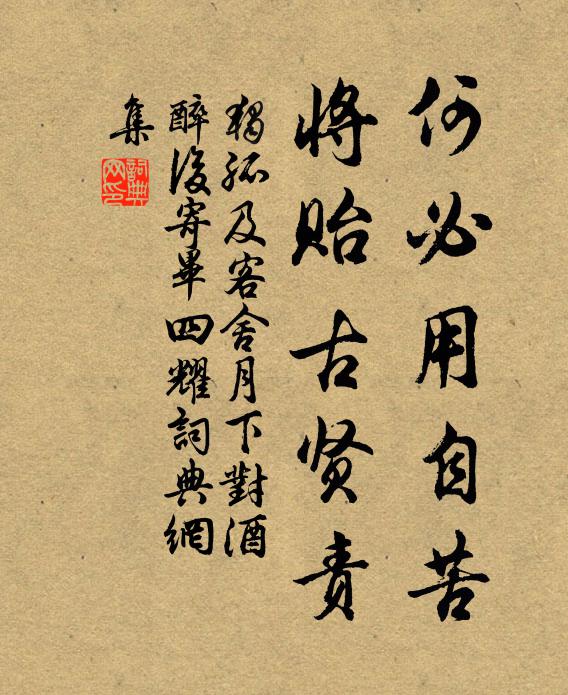 何必用自苦
将贻古贤责
獨孤及客舍月下對酒
醉後寄畢四耀詞典網
集
詞典
网印